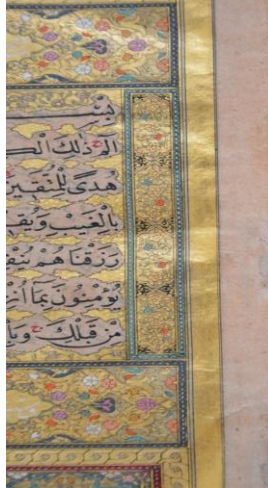 بِسْـ
الٓمٓ ذٰلِكَ الْكـ
هُدًى لِلْمُتَّقِينَ
بِالْغَيْبِ وَيُقِـ
رَزَقْنَاهُمْ يُنْفِـ
يُؤْمِنُونَ بِمَا أُنْزِ
مِنْ قَبْلِكَ وَبِا